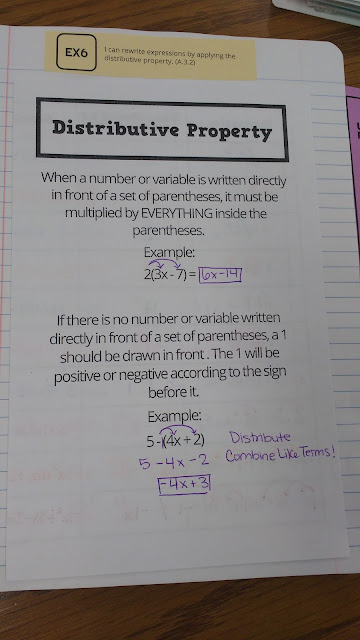 EX6
I can rewrite expressions by applying the
distributive property. (A.3.2)
Distributive Property
When a number or variable is written directly
in front of a set of parentheses, it must be
multiplied by EVERYTHING inside the
parentheses.
Example:
2(3x - 7) = 6x-14
If there is no number or variable written
directly in front of a set of parentheses, a 1
should be drawn in front. The 1 will be
positive or negative according to the sign
before it.
Example:
5 -1(4x + 2) Distribute
5 -4x -2 Combine Like Terms!
-4x+3